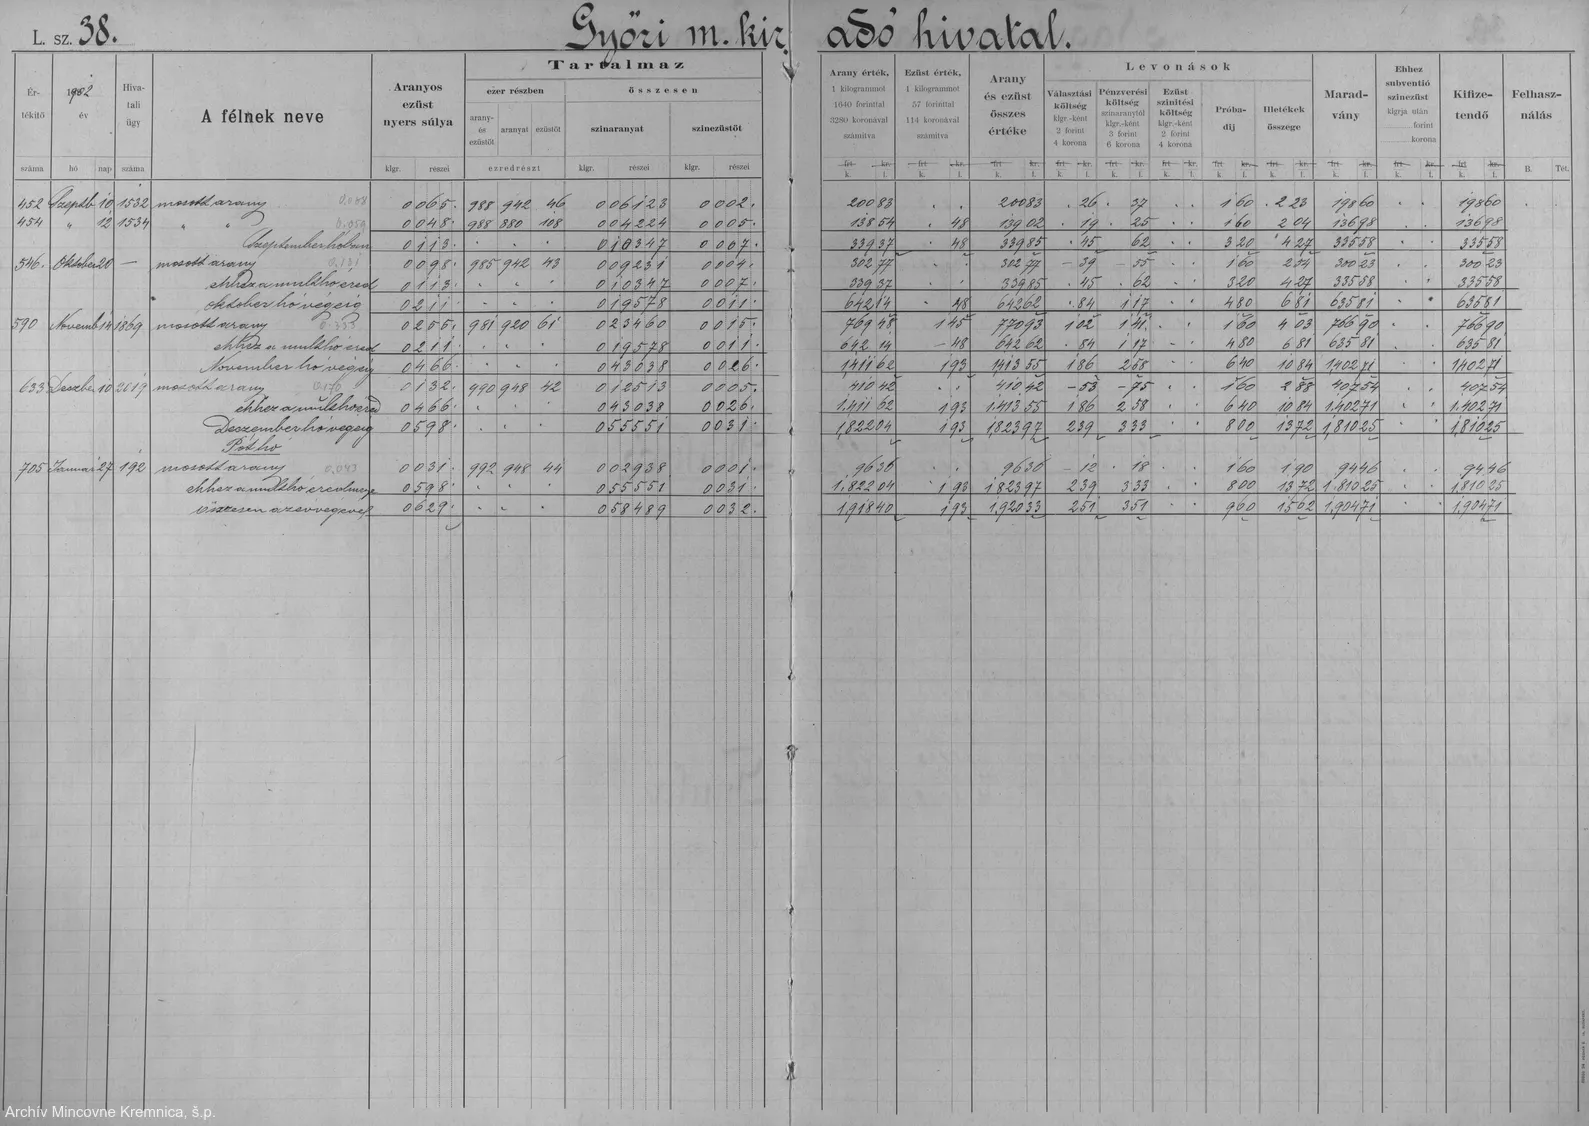 L. sz. 38.
Győri m. kir. adó hivatal.
Ér-
tékitő
száma
1902
év
hó
nap
Hiva-
tali
ügy
száma
A félnek neve
Aranyos
ezüst
nyers súlya
klgr. részei
Tartalmaz
ezer részben
arany-
és
ezüstöt
aranyat
ezüstöt
ezredrészt
összesen
szinaranyat
klgr. részei
szinezüstöt
klgr. részei
Arany érték,
1 kilogrammot
1640 forinttal
3280 koronával
számitva
Ezüst érték,
1 kilogrammot
57 forinttal
114 koronával
számitva
Arany
és ezüst
összes
értéke
Levonások
Választási
költség
klgr.-ként
2 forint
4 korona
Pénzverési
költség
szinaranytól
klgr.-ként
3 forint
6 korona
Ezüst
szinitési
költség
klgr.-ként
2 forint
4 korona
Próba-
díj
Illetékek
összege
Marad-
vány
Ehhez
subventió
szinezüst
klgrja után
forint
korona
Kifize-
tendő
Felhasz-
nálás
frt kr. frt kr. frt kr. frt kr. frt kr. frt kr. frt kr. frt kr. frt kr. frt kr. frt kr.
k. f. k. f. k. f. k. f. k. f. k. f. k. f. k. f. k. f. k. f. k. f. B. Tét.
452 Septb 10 1532 mosott arany 0065 988 942 46 006123 0002 20083 20083 26 37 160 223 19860 19860
454 " 12 1534 " " 0048 988 880 108 004224 0005 13854 48 13902 19 25 160 204 13698 13698
Szeptember hóban 0113 010347 0007 33937 48 33985 45 62 320 427 33558 33558
546 Oktober 20 — mosott arany 0.131 0098 985 942 43 009231 0004 30277 30277 39 55 160 254 30023 30023
ehhez a multhó ered 0113 010347 0007 33937 33985 45 62 320 427 33558 33558
oktober hó végéig 0211 019578 0011 64214 48 64262 84 117 480 681 63581 63581
590 Novemb 14 1869 mosott arany 0255 981 920 61 023460 0015 76948 145 77093 102 141 160 403 76690 76690
ehhez a multhó ered 0211 019578 0011 64214 48 64262 84 117 480 681 63581 63581
November hó végéig 0466 043038 0026 141162 193 141355 186 258 640 1084 140271 140271
633 Deszbe 10 2019 mosott arany 0132 990 948 42 012513 0005 41042 41042 53 75 160 288 40754 40754
ehhez a multhó ered 0466 043038 0026 141162 193 141355 186 258 640 1084 140271 140271
Deszember hó végéig 0598 055551 0031 182204 193 182397 239 333 800 1372 181025 181025
Póthó
705 Januar 27 192 mosott arany 0.043 0031 992 948 44 002938 0001 9636 9636 12 18 160 190 9446 9446
ehhez a multhó eredmenye 0598 055551 0031 182204 193 182397 239 333 800 1372 181025 181025
összesen az év végével 0629 058489 0032 191840 193 192033 251 351 960 1562 190471 190471
Archív Mincovne Kremnica, š.p.